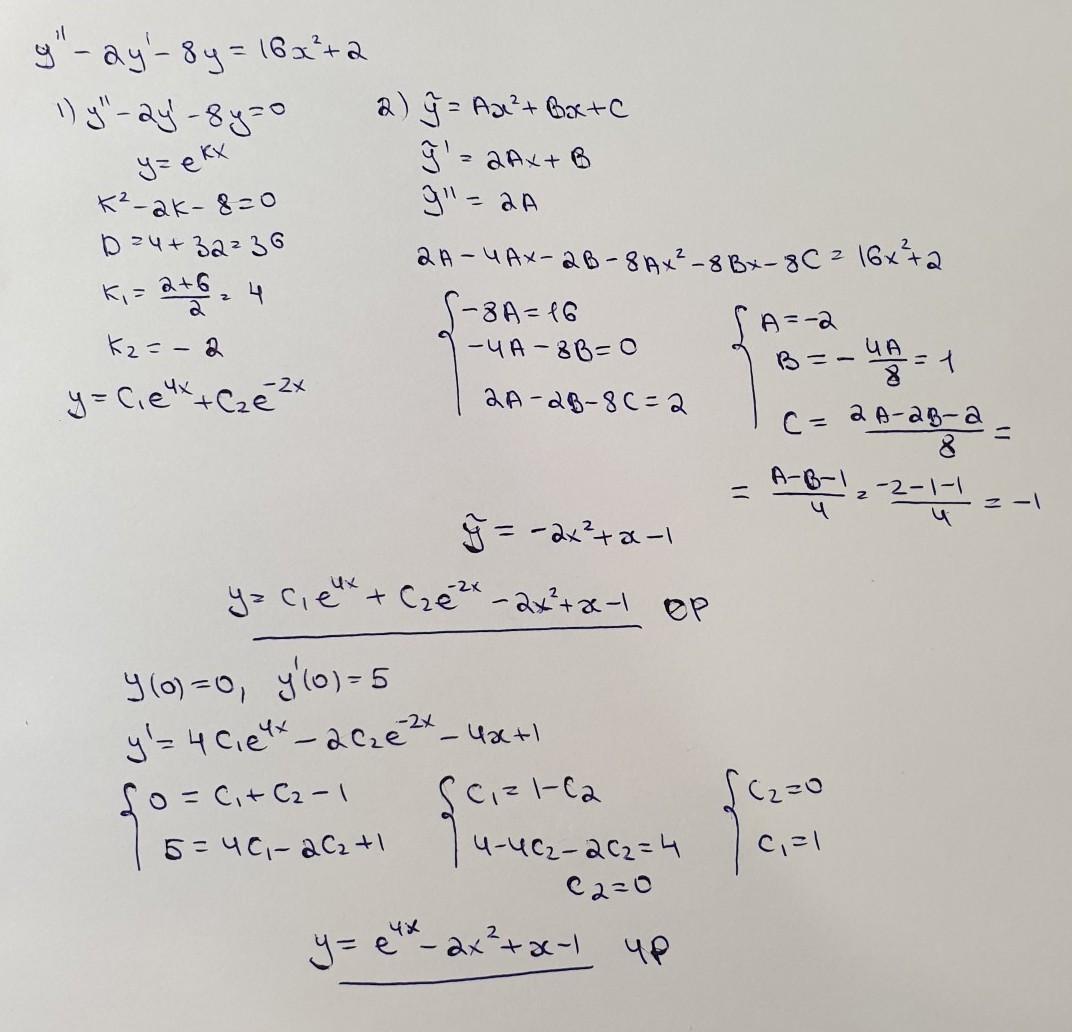 y'' - 2y' - 8y = 16x² + 2
1) y'' - 2y' - 8y = 0
y = e^{kx}
k² - 2k - 8 = 0
D = 4 + 32 = 36
k₁ = (2+6)/2 = 4
k₂ = - 2
y = C₁e^{4x} + C₂e^{-2x}
2) ỹ = Ax² + Bx + C
ỹ' = 2Ax + B
ỹ'' = 2A
2A - 4Ax - 2B - 8Ax² - 8Bx - 8C = 16x² + 2
{ -8A = 16
-4A - 8B = 0
2A - 2B - 8C = 2
{ A = -2
B = - 4A/8 = 1
C = (2A - 2B - 2)/8 =
= (A - B - 1)/4 = (-2 - 1 - 1)/4 = -1
ỹ = -2x² + x - 1
y = C₁e^{4x} + C₂e^{-2x} - 2x² + x - 1 ОР
y(0) = 0, y'(0) = 5
y' = 4C₁e^{4x} - 2C₂e^{-2x} - 4x + 1
{ 0 = C₁ + C₂ - 1
5 = 4C₁ - 2C₂ + 1
{ C₁ = 1 - C₂
4 - 4C₂ - 2C₂ = 4
C₂ = 0
{ C₂ = 0
C₁ = 1
y = e^{4x} - 2x² + x - 1 ЧР